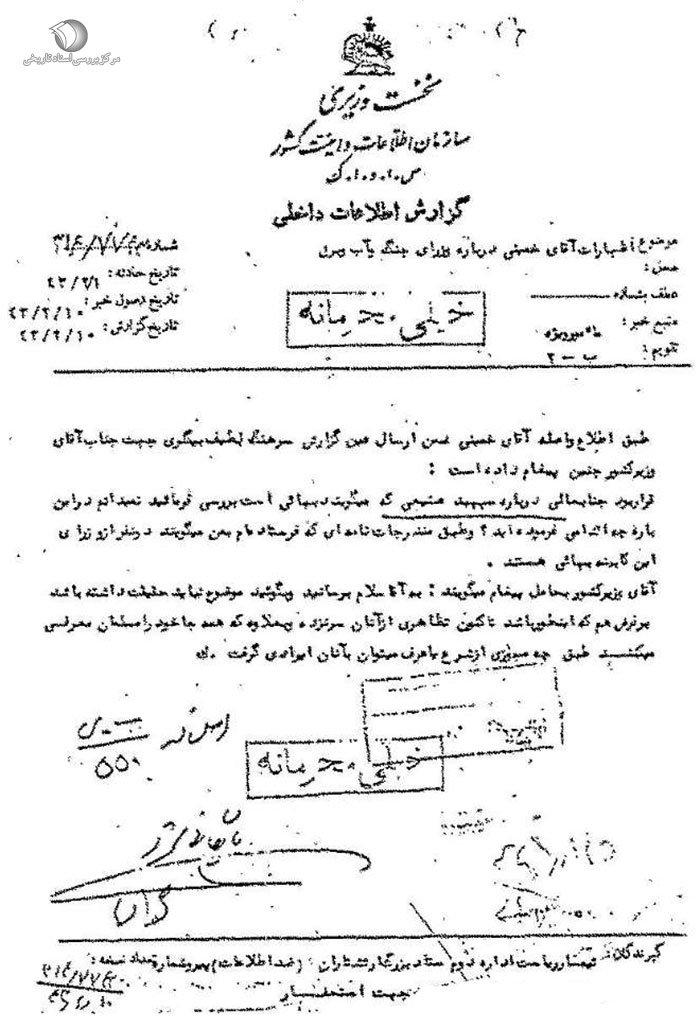 مرکز بررسی اسناد تاریخی
نخست وزیری
سازمان اطلاعات و امنیت کشور
س.ا.و.ا.ک
گزارش اطلاعات داخلی
موضوع اظهارات آقای خمینی درباره وزرای جنگ یاآب وبرق
محل :
عطف بشماره
منبع خبر :
تقویم : ب - ۲
تاریخ حادثه : ۴۳/۲/۱
تاریخ وصول خبر : ۴۳/۲/۱۰
تاریخ گزارش : ۴۳/۲/۱۰
خیلی محرمانه
طبق اطلاع واصله آقای خمینی ضمن ارسال عین گزارش سرهنگ لطیف بیگلری جهت جناب آقای
وزیرکشور چنین پیغام داده است :
قراربود جنابعالی درباره سپهبد صنیعی که میگویند بهائی است بررسی فرمائید نمیدانم دراین
باره چه اقدامی فرموده اید ؟ وطبق مندرجات نامه ای که فرستاده ام بمن میگویند دونفر ازوزرا ی
این کابینه بهائی هستند .
آقای وزیرکشور بحامل پیغام میگویند : به آقا سلام برسانید وبگوئید موضوع نباید حقیقت داشته باشد
برفرض هم که اینطور باشد تاکنون تظاهری ازآنان سرنزده وبعلاوه که همه جا خود رامسلمان معرفی
میکنند طبق چه مجوزی ازشرع یاعرف میتوان بآنان ایرادی گرفت . ك
خیلی محرمانه
گیرندگان : تیمسار ریاست اداره دوم ستاد بزرگ ارتشتاران (ضد اطلاعات)
تعداد نسخه :
جهت استحضار